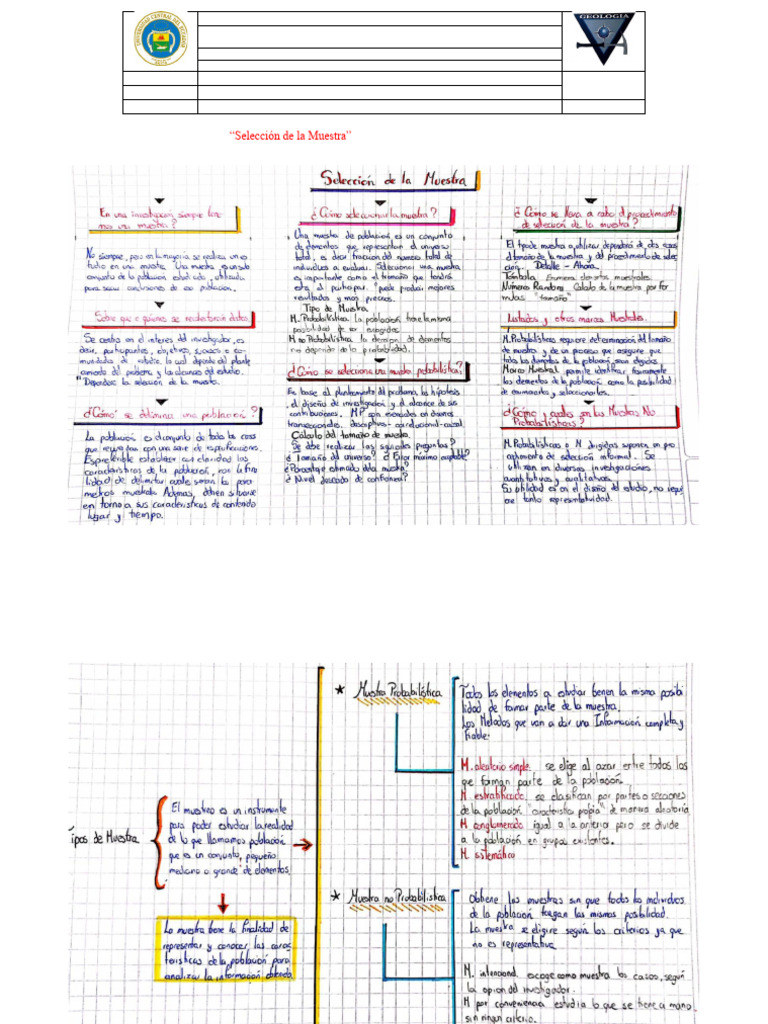 UNIVERSIDAD CENTRAL DEL ECUADOR
GEOLOGIA
“Selección de la Muestra”
Selección de la Muestra
En una investigación siempre tene
mos una muestra?
No siempre, pero en la mayoría se realiza un es
tudio en una muestra. Una muestra es un sub
conjunto de la población del estudio, utilizada
para sacar conclusiones de esa población.
Sobre que o quienes se recolectarán datos
Se centra en el interes del investigador, es
decir, participantes, objetivos, sucesos o co-
munidades de estudio, lo cual depende del plante
amiento del problema y los alcances del estudio.
"Depende la selección de la muestra.
¿Cómo se delimita una población?
La población es el conjunto de todos los casos
que concuerdan con una serie de especificaciones.
Es preferible establecer con claridad las
características de la población, con la fina
lidad de delimitar cuales serán los para
metros muestrales. Ademas, deben situarse
en torno a sus características de contenido
lugar y tiempo.
¿Cómo seleccionar la muestra?
Una muestra de población es un conjunto
de elementos que representan el universo
total, es decir fracción del número total de
individuos a evaluar. Seleccionar una muestra
es importante como el tamaño que tendrá
esta al participar. "puede producir mejores
resultados y mas precisos.
Tipo de Muestra
M. Probabilística. la población tiene la misma
posibilidad de ser escogidos
M no Probabilística. la decision de elementos
no depende de la probabilidad.
¿Cómo se selecciona una muestra probabilística?
En base al planteamiento del problema, las hipótesis
, el diseño de investigación y el alcance de sus
contribuciones. MP son esenciales en diseños
transeccionales, descriptivos - correlacional-causal.
Cálculo del tamaño de muestra.
Se debe realizar las siguientes preguntas?
¿Tamaño del universo? ¿Error máximo aceptable?
¿Porcentaje estimado de la muestra?
¿Nivel deseado de confianza?
¿Cómo se lleva a cabo el procedimiento
de selección de la muestra?
El tipo de muestra a utilizar dependerá de dos cosas
el tamaño de la muestra y del procedimiento de selec
ción. Detalle - Ahora.
Tómbola Enumerar elementos muestrales
Números Random Calculo de la muestra por for
mulas "tamaño"
Listados y otros marcos Muestrales.
M. Probabilísticas requiere determinación del tamaño
de muestra y de un proceso que asegure que
todos los elementos de la población, sean elegidos
Marco Muestral permite identificar fisicamente
los elementos de la población como la posibilidad
de enumerarlos y seleccionarlos.
¿Cómo y cuales son las Muestras No
Probabilísticas?
M. Probabilísticas o M dirigidas suponen un pro
cedimiento de selección informal. Se
utilizan en diversas investigaciones
cuantitativas y cualitativas.
Su utilidad es en el diseño del estudio, no requi
ere tanto representatividad.
Tipos de Muestra
El muestreo es un instrumento
para poder estudiar la realidad
de lo que llamamos población
que es un conjunto, pequeño
mediano o grande de elementos.
La muestra tiene la finalidad de
representar y conocer las carac
teristicas de la población para
analizar la información obtenida
* Muestra Probabilística
Todos los elementos a estudiar tienen la misma posibi
lidad de formar parte de la muestra.
Los Metodos que van a dar una Información completa y
fiable:
M. aleatorio simple: se elige al azar entre todos los
que forman parte de la población.
M estratificado. se clasifican por partes o secciones
de la población "caracteristica propia" de manera aleatoria
M conglomerado igual a la anterior pero se divide
a la población en grupos existentes.
M sistemático
* Muestra no Probabilistica
Obtiene las muestras sin que todos los individuos
de la población tengan las mismas posibilidad.
La muestra se eligire según los criterios ya que
no es representativa.
M. intencional escoge como muestra los casos, según
la opion del investigador.
M por conveniencia estudia lo que se tiene a mano
sin ningun criterio.